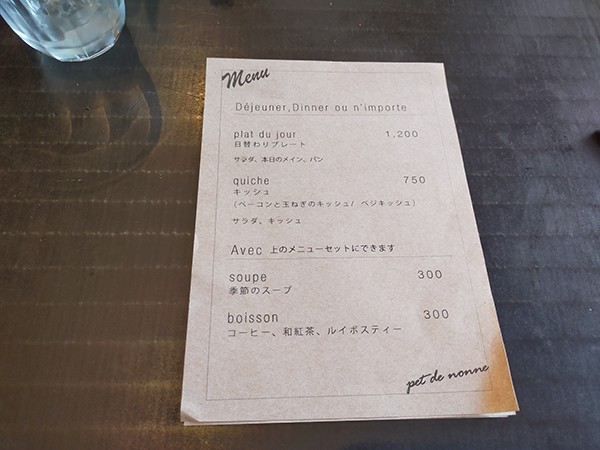 Menu
Déjeuner,Dinner ou n'importe
plat du jour 1,200
日替わりプレート
サラダ、本日のメイン、パン
quiche 750
キッシュ
(ベーコンと玉ねぎのキッシュ/ ベジキッシュ)
サラダ、キッシュ
Avec 上のメニューセットにできます
soupe 300
季節のスープ
boisson 300
コーヒー、和紅茶、ルイボスティー
pet de nonne